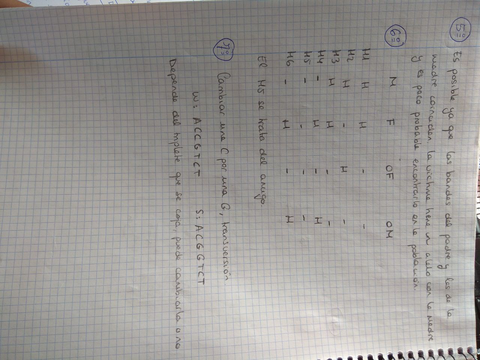 5º Es posible ya que las bandas del padre y las de la
madre coinciden, la víctima tiene un alelo con la madre
y es poco probable encontrarlo en la población
6º M F OF OM
H1 H H - -
H2 H - H -
H3 H H - -
H4 - H - H
H5 - - - -
H6 - H - H
El H5 se trata del amigo
7º Cambiar una C por una G, transversión
W: ACCGTCT S: ACGGTCT
Depende del triplete que se coja puede cambiarla o no